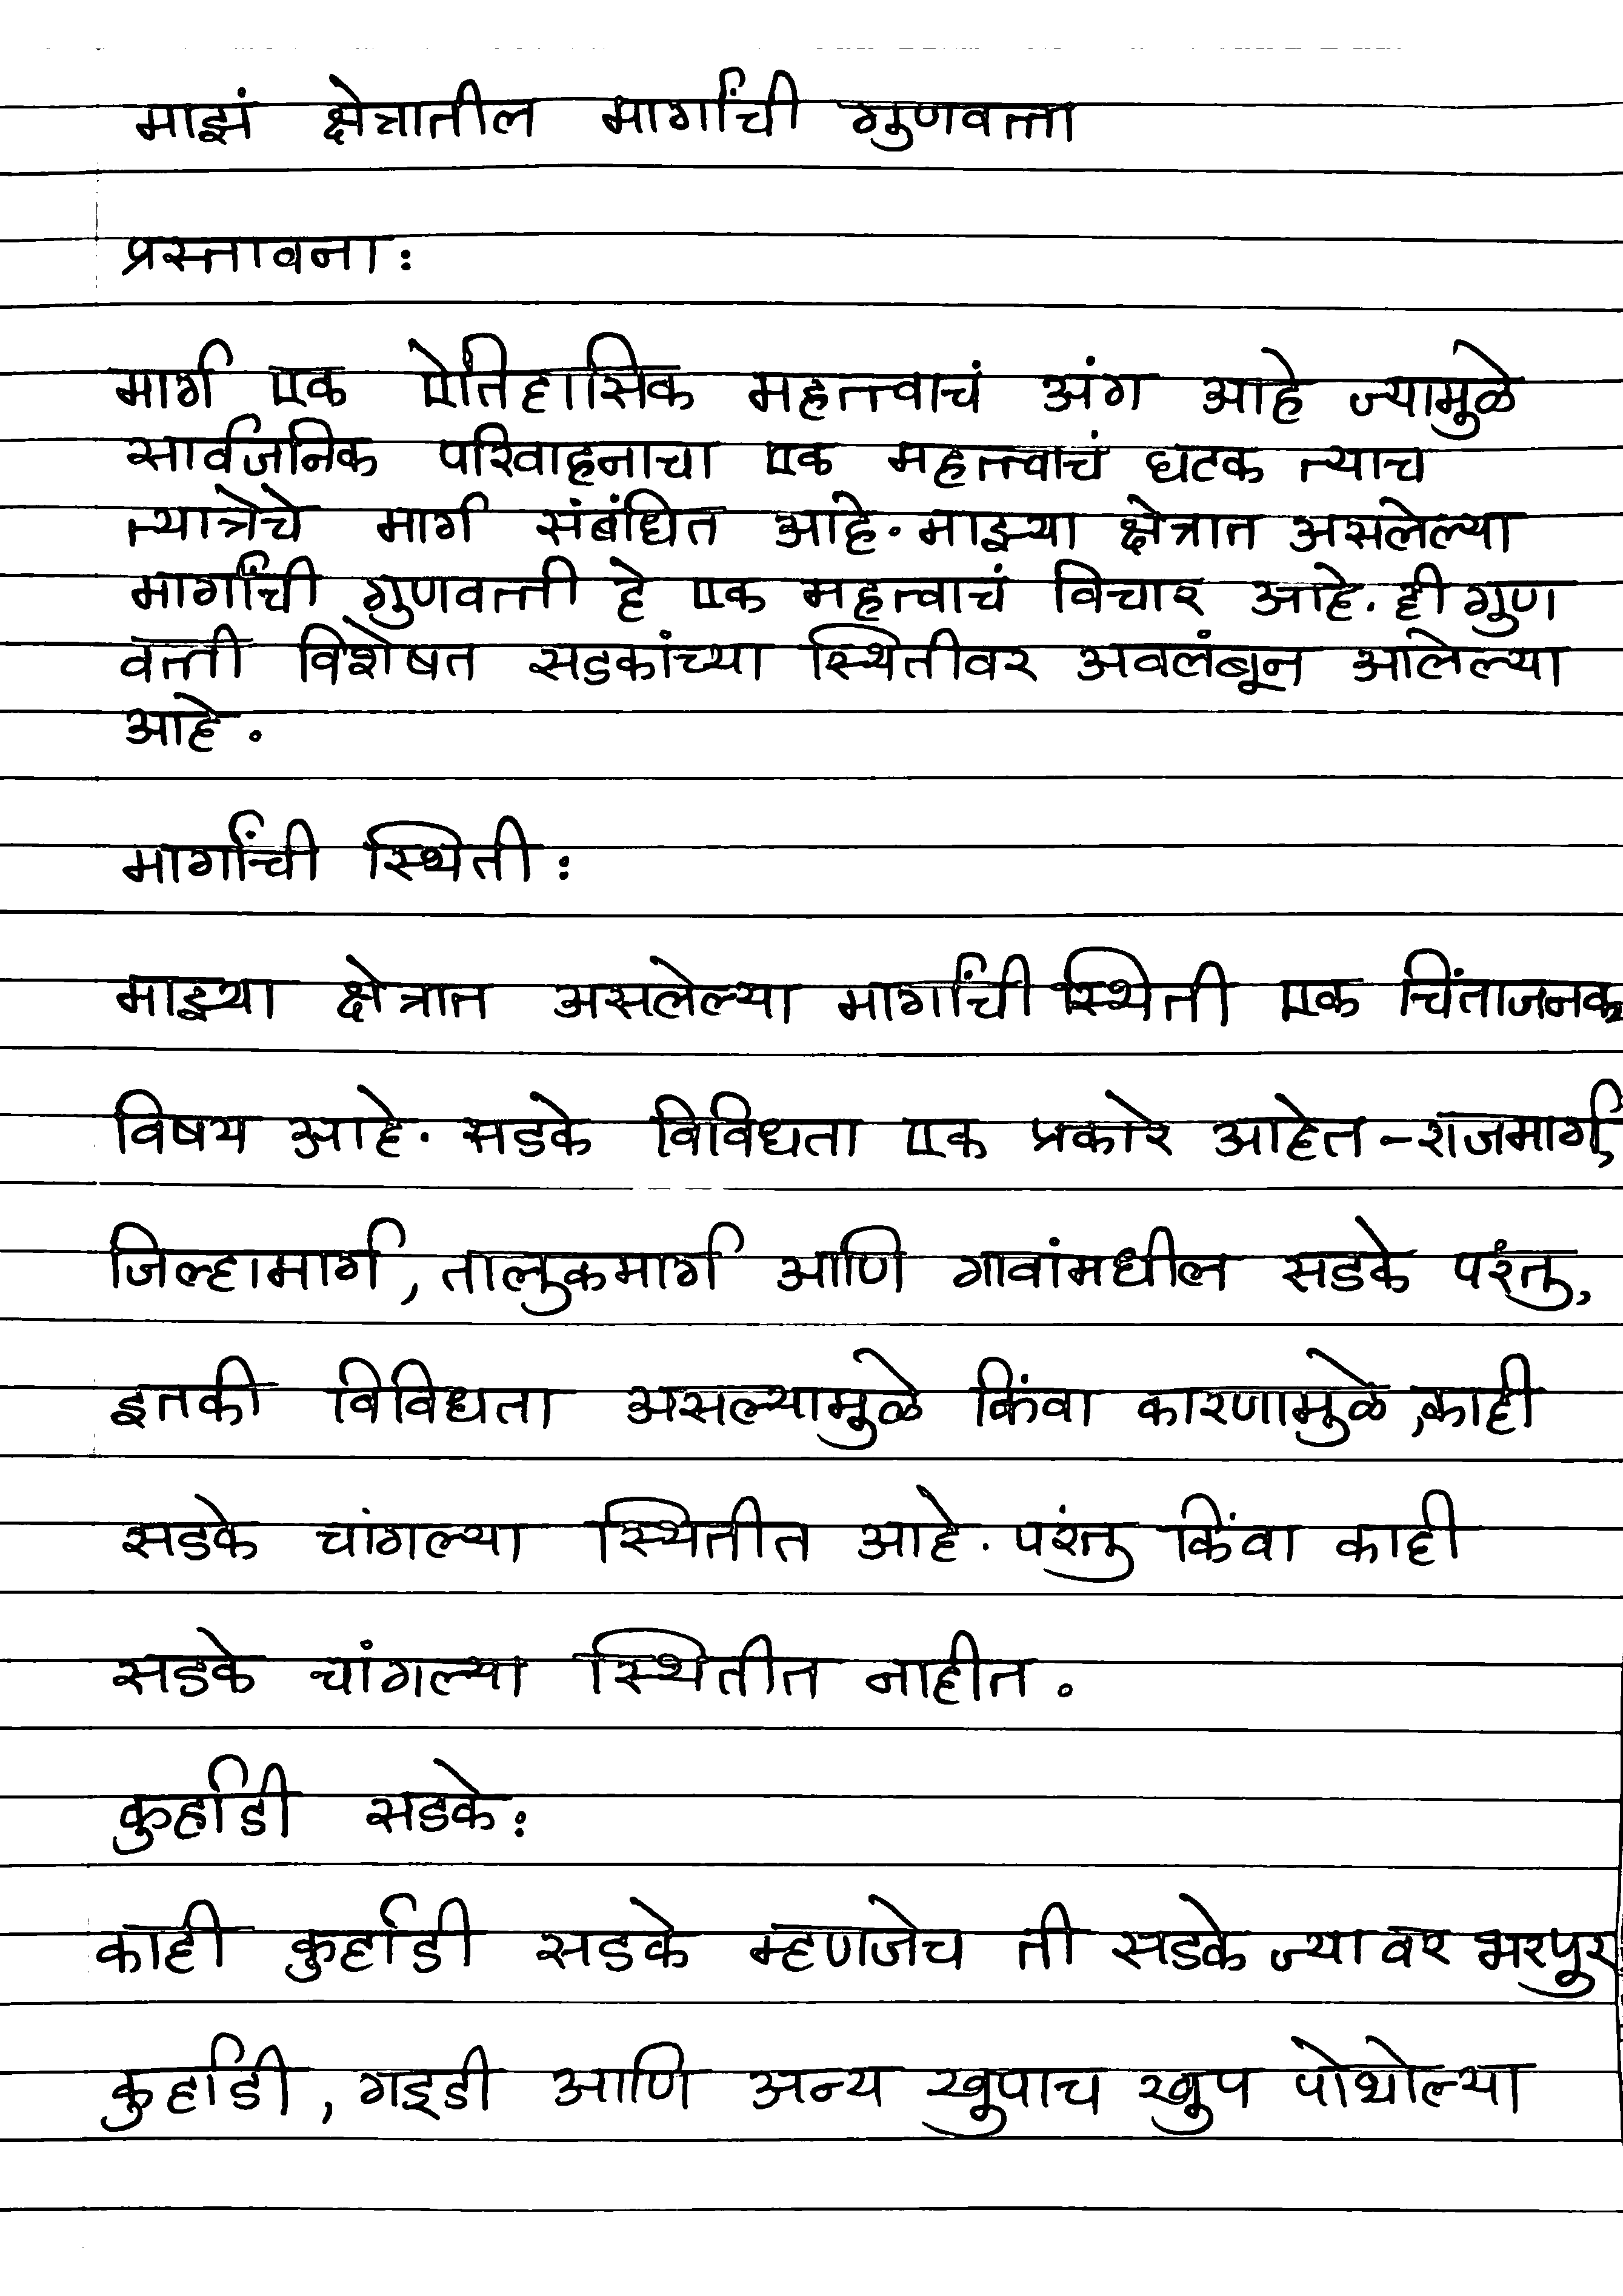 माझं क्षेत्रातील मार्गांची गुणवत्ता
प्रस्तावना:
मार्ग एक ऐतिहासिक महत्त्वाचं अंग आहे ज्यामुळे
सार्वजनिक परिवाहनाचा एक महत्त्वाचं घटक त्याच
त्यात्रेचे मार्ग संबंधित आहे. माझ्या क्षेत्रात असलेल्या
मार्गांची गुणवत्ती हे एक महत्वाचं विचार आहे. ही गुण
वत्ती विशेषत सडकांच्या स्थितीवर अवलंबून आलेल्या
आहे.
मार्गांची स्थिती:
माझ्या क्षेत्रात असलेल्या मार्गांची स्थिती एक चिंताजनक
विषय आहे. सडके विविधता एक प्रकारे आहेत - राजमार्ग,
जिल्हामार्ग, तालुकमार्ग आणि गावांमधील सडके परंतु,
इतकी विविधता असल्यामुळे किंवा कारणामुळे, काही
सडके चांगल्या स्थितीत आहे. परंतु किंवा काही
सडके चांगल्या स्थितीत नाहीत.
कुर्हाडी सडके:
काही कुर्हाडी सडके म्हणजेच ती सडके ज्यावर भरपुर
कुर्हाडी, गड्डी आणि अन्य खूपाच खुप पोथोल्या